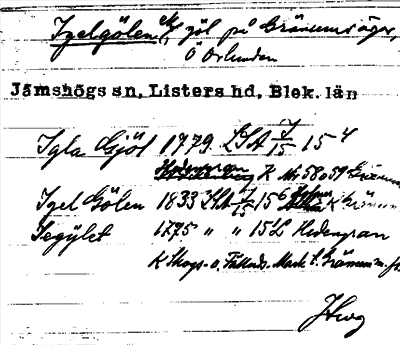 Igelgölen göl på Gränums ägor,
Ö Orlunden
Jämshögs sn, Listers hd, Blek. län
Igla Gjöl 1779. LSA J/15 15 4
K Nr 58059 Gränum
Igel Gölen 1833 LSA J/15 15 6 K Gränum
Iegylet 1795 " " 15 Hedengran
K Skogs- o. Fällads. Mark t. Gränum
JHwg